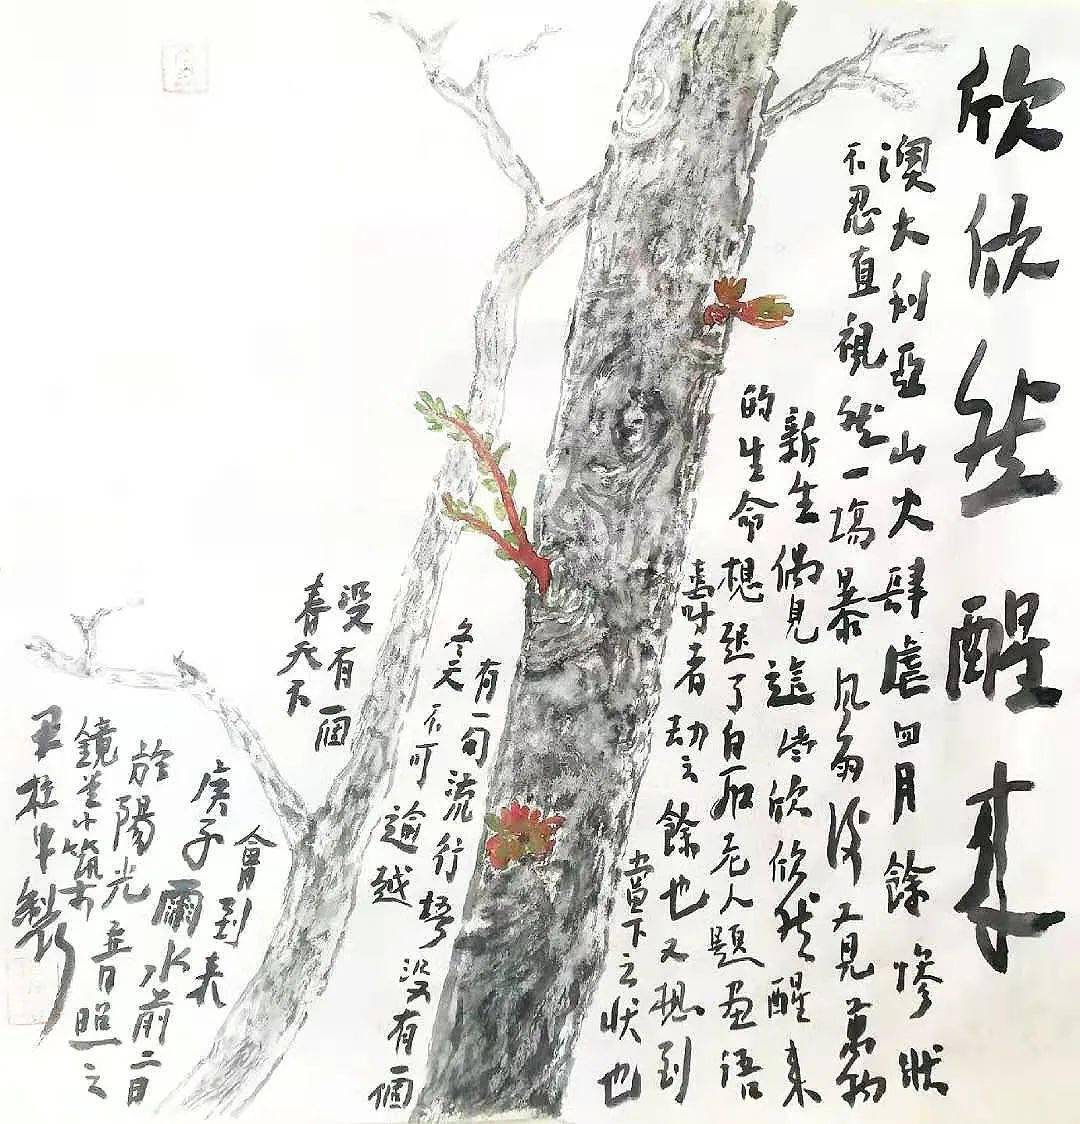 欣欣然醒来
澳大利亞山火肆虐四月餘慘狀
不忍直視然一場暴风雨後又見萬物
新生偶見這些欣欣然醒来
的生命想起了白石老人題畫語
壽者劫之餘也又想到
當下之状也
有一句流行語没有個
冬天不可逾越
没有一個
春天不
會到来
庚子雨水前二日
於陽光音日照之
鏡